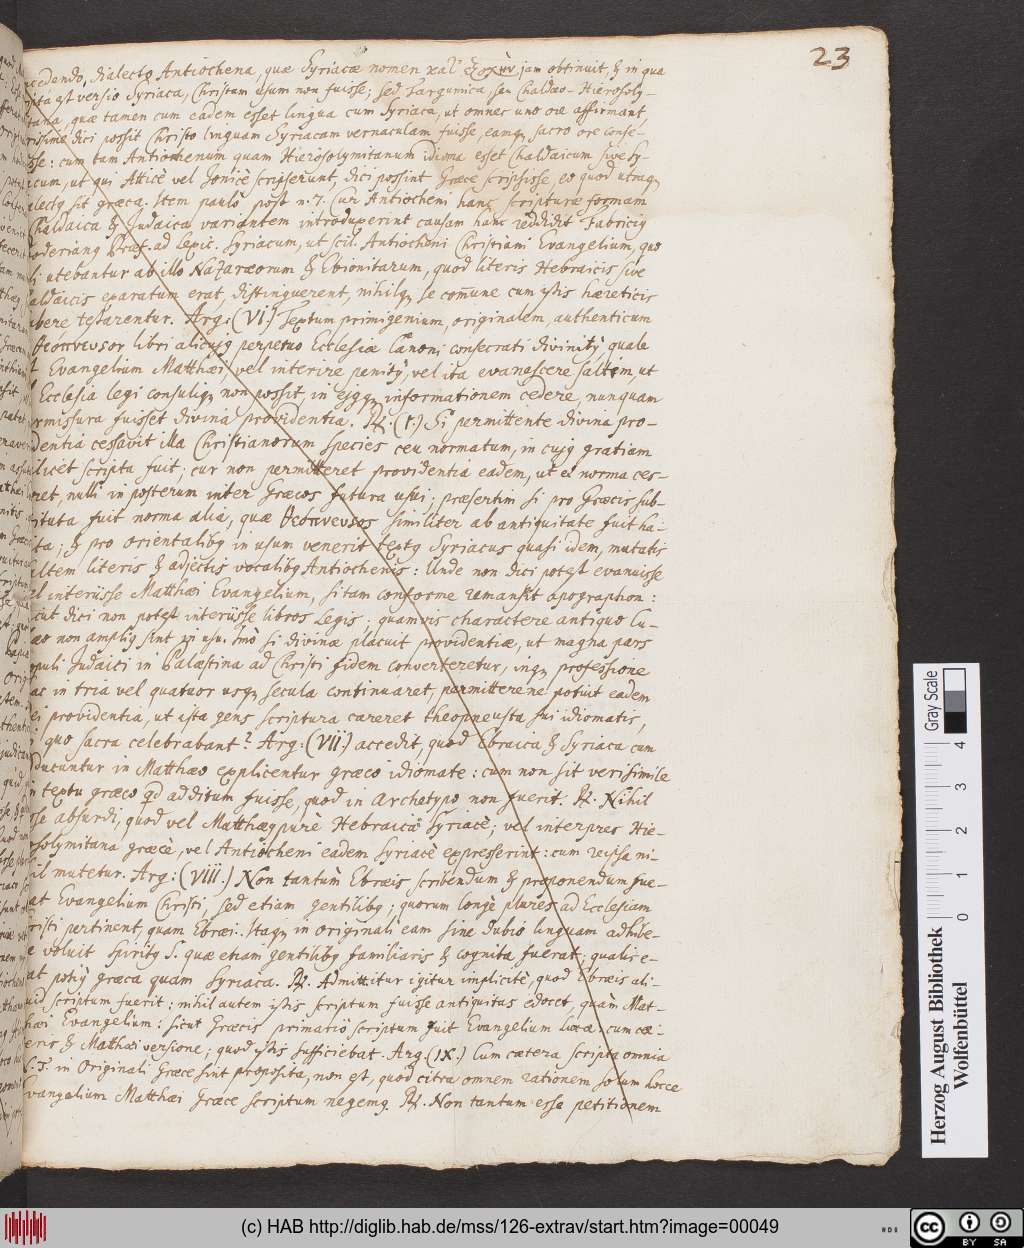 23
cedendo, dialectq Antiochena, quæ Syriacæ nomen jam obtinuit, & in qua
est versio Syriaca, Christum usum non fuisse; sed Targumica, seu Chaldæo-Hierosoly-
tana, quæ tamen cum eadem esset lingua cum Syriaca, ut omnes uno ore affirmant,
dici possit Christo linguam Syriacam vernaculam fuisse, eamq sacro ore conse-
sse: cum tam Antiochenum quam Hierosolymitanum idioma esset Chaldaicum sive Sy-
cum, ut qui Atticè vel Ionicè scripserunt, dici possint Græce scripsisse, eo quod utraq
alectq sit græca. Item paulò post n. 7. Cur Antiocheni hanc scripturæ formam
Chaldaica & Judaica variantem introduxerint causam hanc reddidit Fabricig
oderiang Præf. ad Lepic. Syriacum, ut scil. Antiocheni Christiani Evangelium, quo
li utebantur ab illo Nazaræorum & Ebionitarum, quod literis Hebraicis sive
aldaicis exaratum erat, distinguerent, nihilq se com̄une cum istis hæreticis
bere testarentur. Arg: (VI.) Textum primigenium, originalem, authenticum
θεόπνευσον libri alicujq perpetuo Ecclesiæ Canoni consecrati divinitq quale
Evangelium Matthæi, vel interire penitq, vel ita evanascere saltem, ut
Ecclesia legi consuliq non possit, in ejqq informationem cedere, nunquam
rmissura fuisset divina providentia. R. (1.) Si permittente divina pro-
dentia cessavit illa Christianorum species ceu normatum, in cujq gratiam
licet scripta fuit; cur non permitteret providentia eadem, ut et norma ces-
ret nulli in posterum inter Græcos futura usui; præsertim si pro Græcis sub-
tituta fuit norma alia, quæ θεόπνευσος similiter ab antiquitate fuit ha-
ita; & pro orientalibq in usum venerit textq Syriacus quasi idem, mutatis
altem literis & adjectis vocalibq Antiochenis: Unde non dici potest evanuisse
el interiisse Matthæi Evangelium, si tam conforme remansit apographon:
icut dici non potest interiisse libros Legis; quamvis charactere antiquo
æo non ampliq sint in usu. Imò si divinæ placuit providentiæ, ut magna pars
opuli Judaici in Palæstina ad Christi fidem converteretur, inq professione
ac in tria vel quatuor usq secula continuaret, permitterene potuit eadem
ei providentia, ut ista gens scriptura careret theopneusta, sui idiomatis,
quo sacra celebrabant? Arg: (VII.) accedit, quod Ebraica & Syriaca cum
ducuntur in Matthæo explicentur græco idiomate: cum non sit verisimile
n textu græco qd additum fuisse, quod in archetypo non fuerit. R. Nihil
sse absurdi, quod vel Matthægq purè Hebraica Syriacè; vel interpres Hie-
osolymitana græcè, vel Antiocheni eadem Syriacè expresserint: cum res ipsa ni-
il mutetur. Arg: (VIII.) Non tantùm Ebræis scribendum & proponendum fue-
at Evangelium Christi, sed etiam gentilibq; quorum longè plures ad Ecclesiam
risti pertinent, quam Ebræi. Itaq in originali eam sine dubio linguam adhibe-
e voluit Spiritq S. quæ etiam gentilibq familiaris & cognita fuerat; qualis e-
at potiq græca quam Syriaca. R. Admittitur igitur implicitè, quod Ebræis ali-
uid scriptum fuerit: nihil autem istis scriptum fuisse antiquitas edocet, quàm Mat-
hæi Evangelium: sicut Græcis primariò scriptum fuit Evangelium Lucæ, cum cæ-
teris & Matthæi versione; quod istis sufficiebat. Arg. (IX.) Cum cætera scripta omnia
in Originali Græce sint proposita, non est, quod citra omnem rationem solum hocce
Evangelium Matthæi Græce scriptum negemq. R. Non tantum esse petitionem
Gray Scale
0 1 2 3 4
Herzog August Bibliothek
Wolfenbüttel
(c) HAB http://diglib.hab.de/mss/126-extrav/start.htm?image=00049
cc BY SA